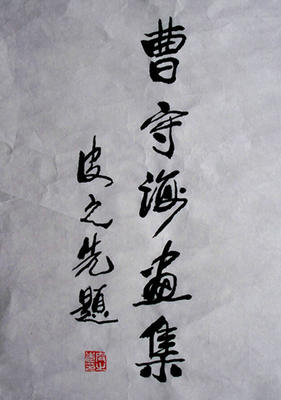 曹守海画集
皮之先题